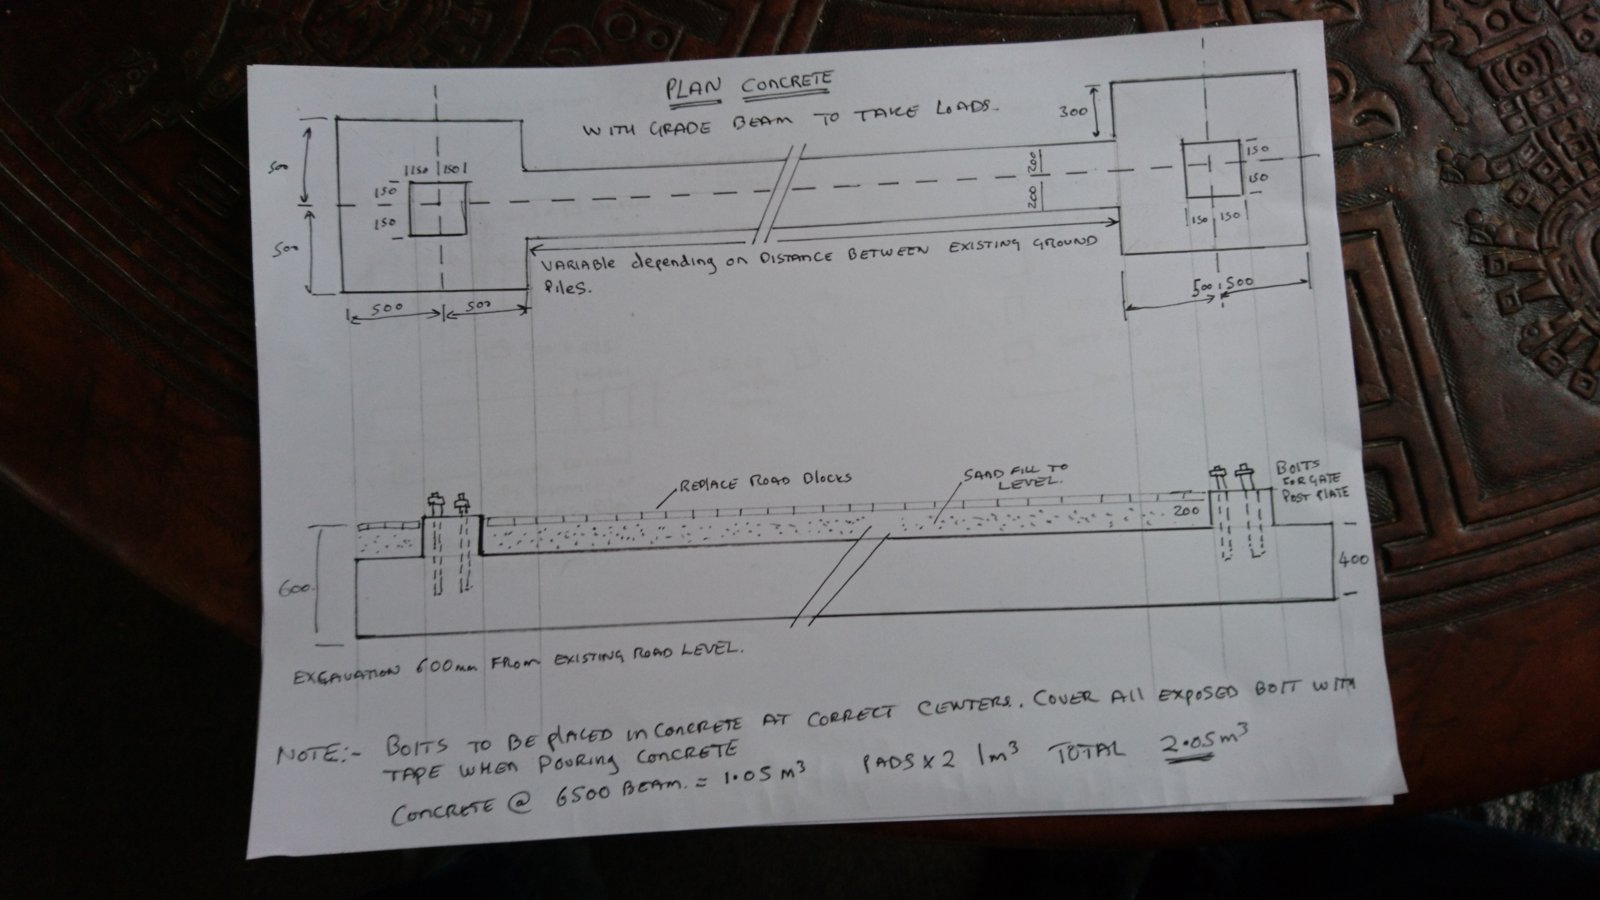 PLAN CONCRETE
WITH GRADE BEAM TO TAKE LOADS.
300
500
150 150
150
150
200
200
150
150
500
150 150
VARIABLE depending on DISTANCE BETWEEN EXISTING GROUND
Piles.
500 500
500 500
REPLACE ROAD Blocks
SAND FILL TO
LEVEL.
BOltS
FOR GATE
POST PLATE
200
600
400
EXCAVATION 600mm FROM EXISTING ROAD LEVEL.
NOTE:- BOltS TO BE PlACED in CONCRETE AT CORRECT CENTERS. COVER All EXPOSED BOlT WITH
TAPE WHEN POURING CONCRETE
CONCRETE @ 6500 BEAM. = 1.05 m³ PADS x 2 1m³ TOTAL 2.05m³